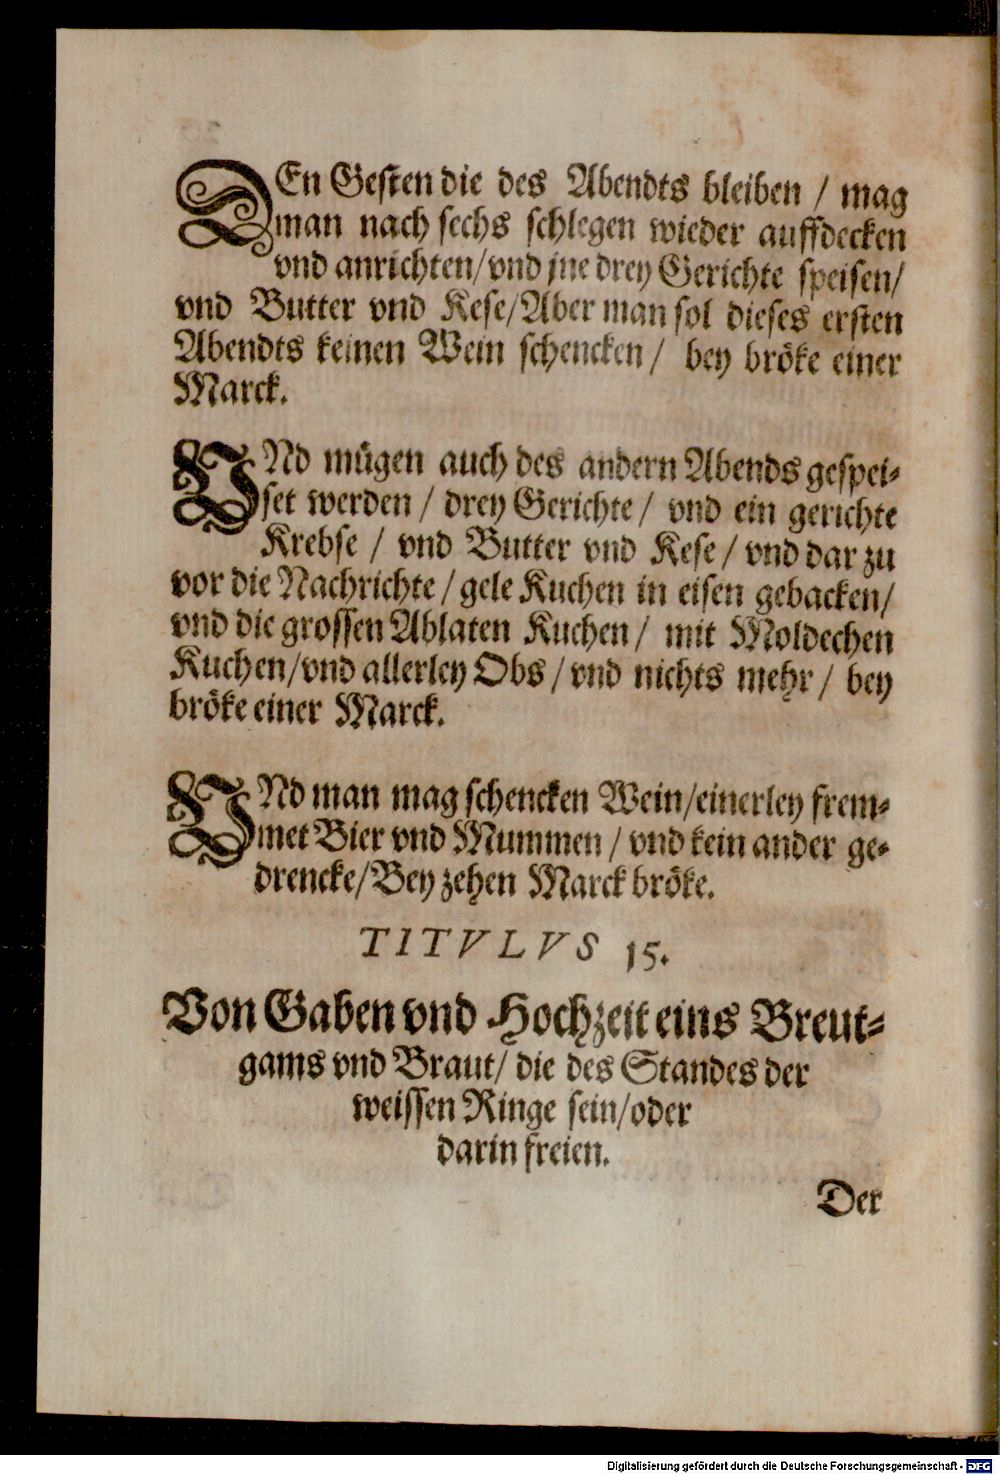 DEn Gesten die des Abendts bleiben / mag
man nach sechs schlegen wieder auffdecken
vnd anrichten/vnd jne drey Gerichte speisen/
vnd Butter vnd Kese/Aber man sol dieses ersten
Abendts keinen Wein schencken / bey bröke einer
Marck.
VNd mügen auch des andern Abends gespei-
set werden / drey Gerichte / vnd ein gerichte
Krebse / vnd Butter vnd Kese / vnd dar zu
vor die Nachrichte / gele Kuchen in eisen gebacken/
vnd die grossen Ablaten Kuchen / mit Moldechen
Kuchen/vnd allerley Obs / vnd nichts mehr / bey
bröke einer Marck.
VNd man mag schencken Wein/einerley frem-
met Bier vnd Mummen / vnd kein ander ge-
drencke/Bey zehen Marck bröke.
TITVLVS 15.
Von Gaben vnd Hochzeit eins Breut-
gams vnd Braut/ die des Standes der
weissen Ringe sein/oder
darin freien.
Der
Digitalisierung gefördert durch die Deutsche Forschungsgemeinschaft - DFG